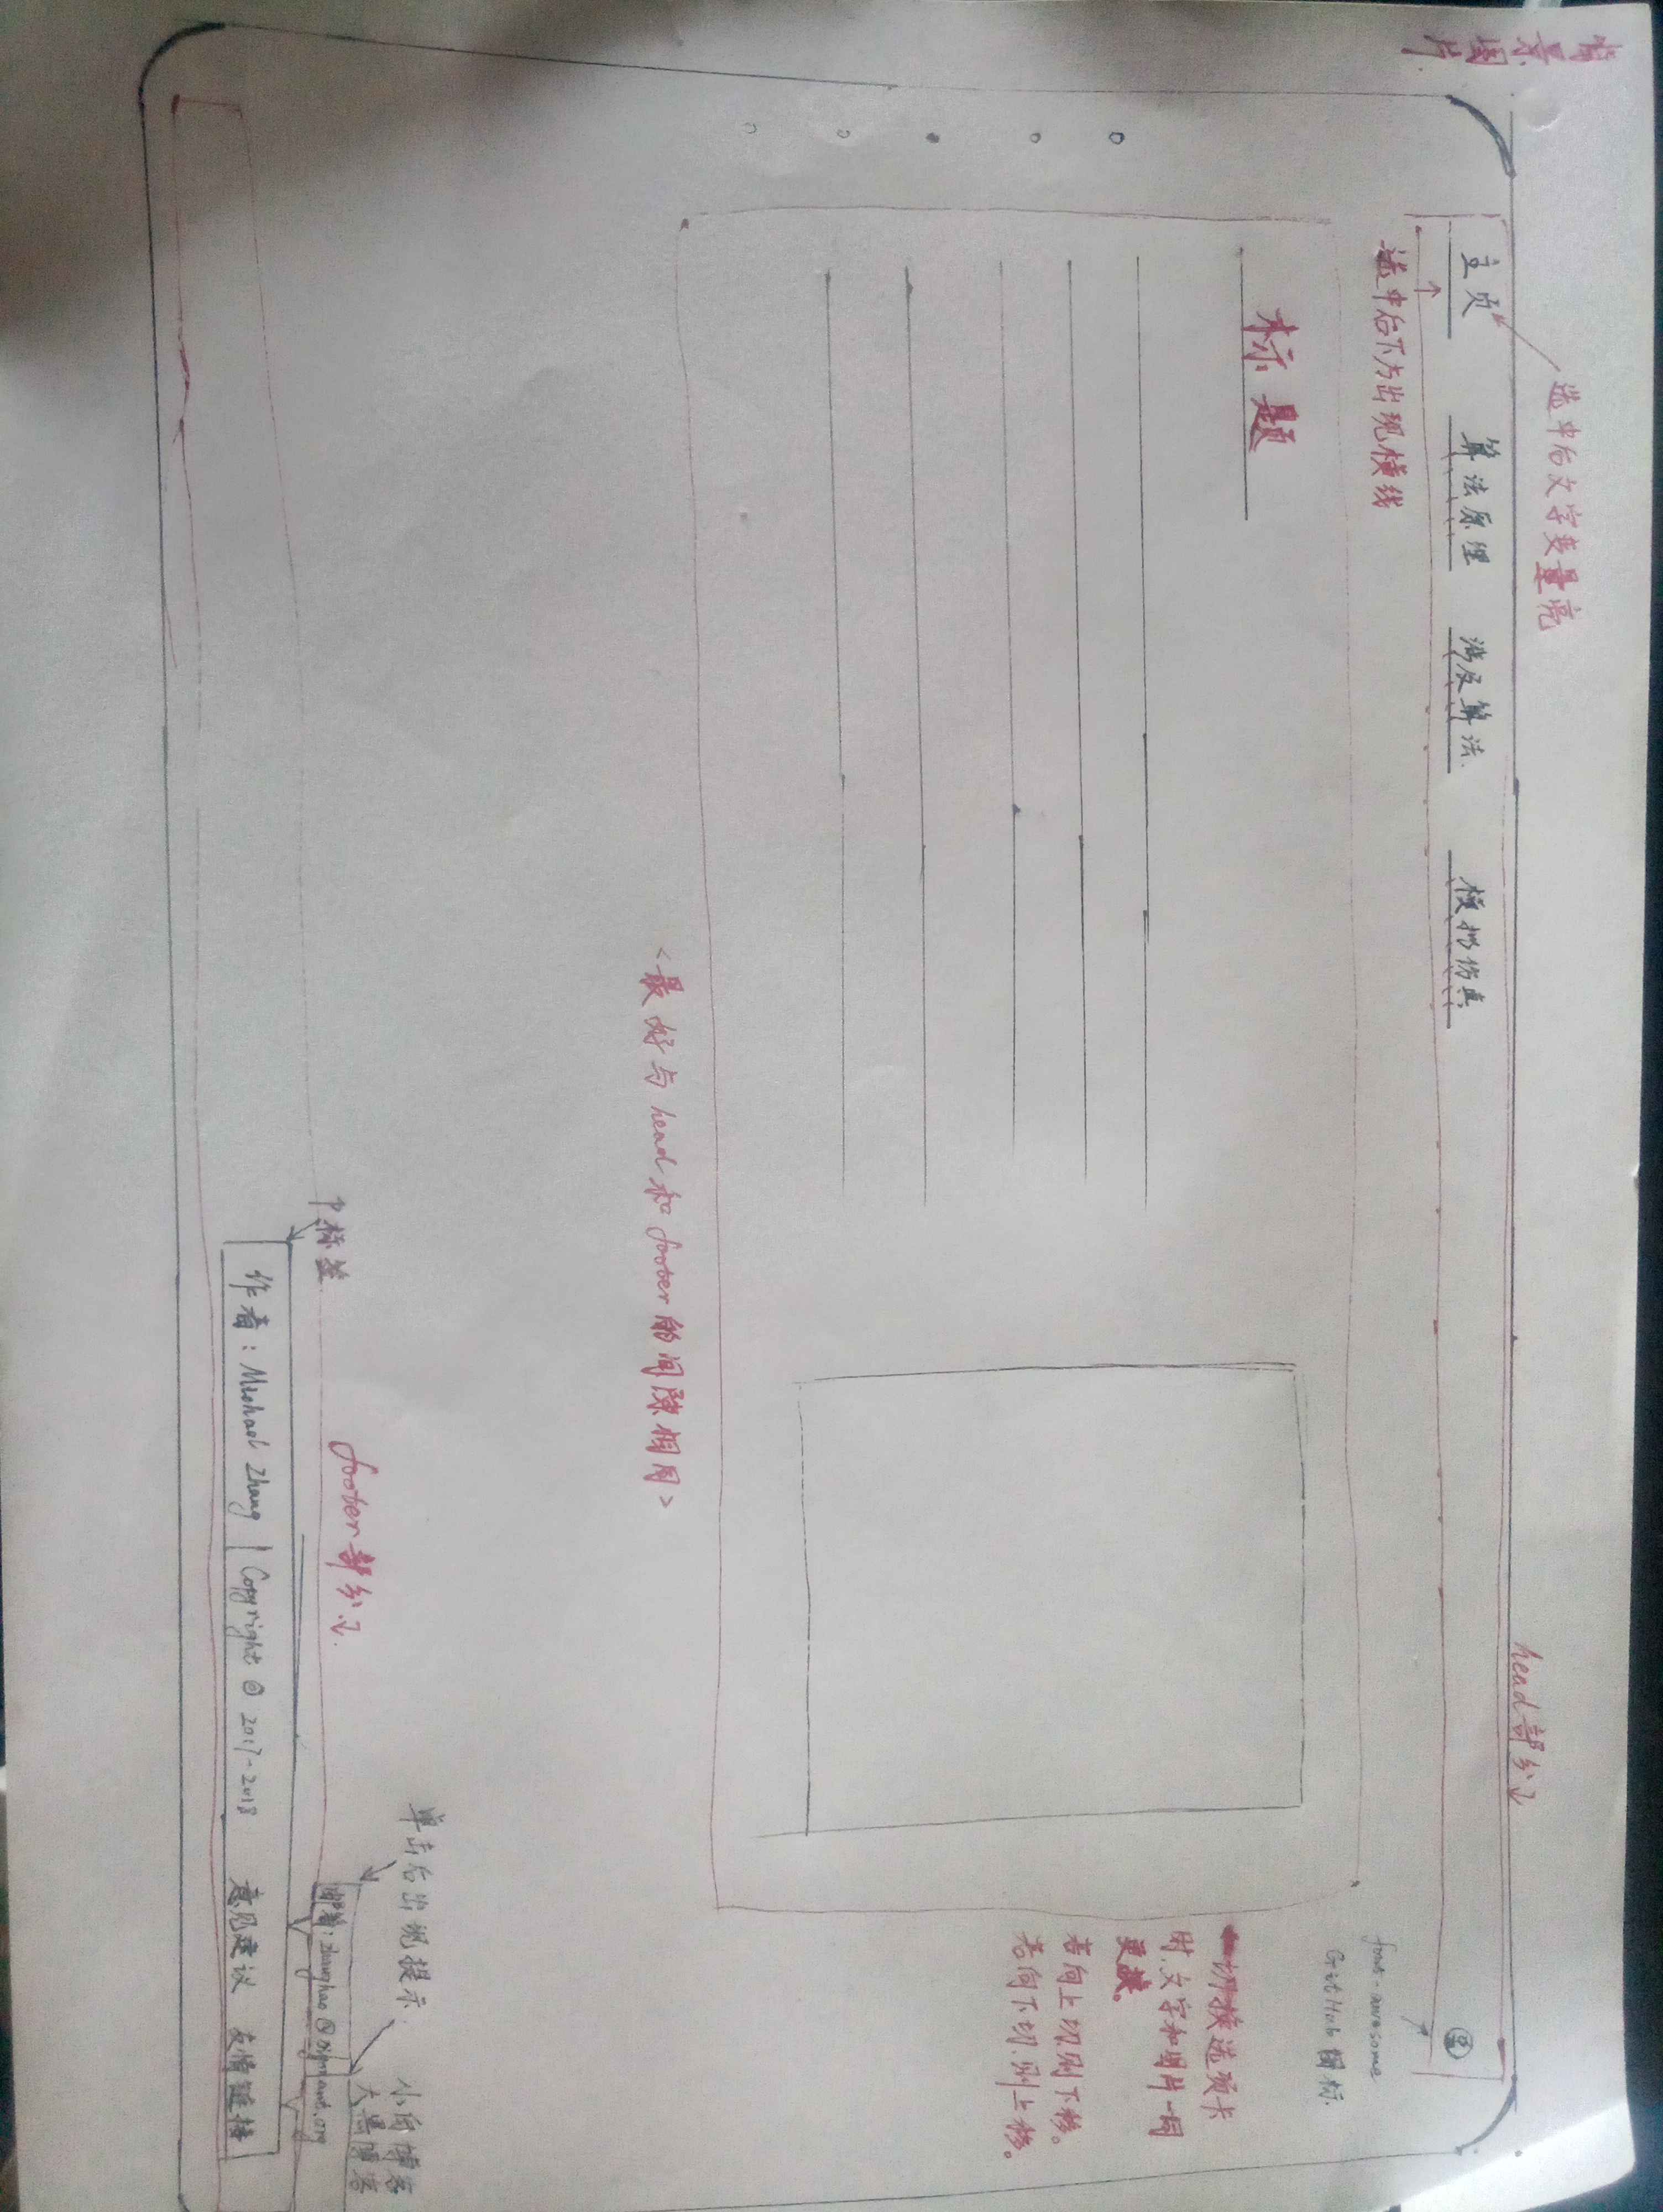 背景图片.
选中后文字变量亮
head部分↓
主页 算法原理 涉及算法. 模拟仿真
选中后下方出现横线
font-awesome
GitHub图标.
标题
←切换选项卡
时,文字和图片一同
更换。
若向上切,则下移。
若向下切,则上移。
<最好与head和footer的间隙相同>
单击后出现提示.
小白博客
大黑博客
footer部分↓.
P标签.
邮箱:zhanghao@sigmaut.org
作者:Michael Zhang | Copyright © 2017-2018 意见建议 友情链接